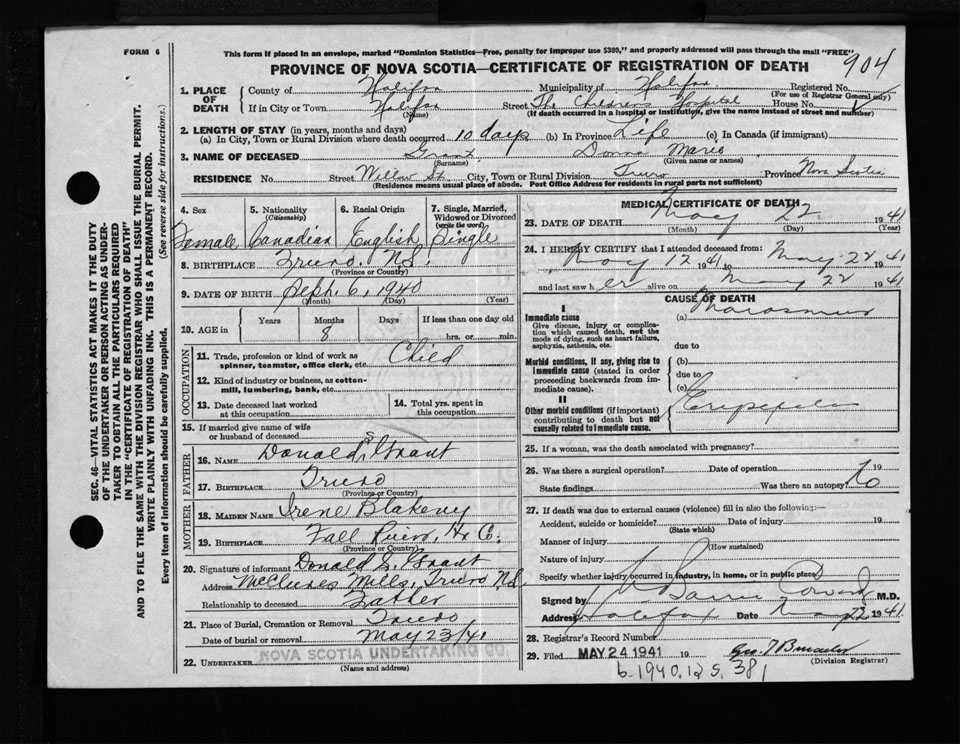 FORM 6
This form if placed in an envelope, marked "Dominion Statistics—Free, penalty for improper use $300," and properly addressed will pass through the mail "FREE"
PROVINCE OF NOVA SCOTIA—CERTIFICATE OF REGISTRATION OF DEATH
904
1. PLACE OF DEATH
County of Halifax Municipality of Halifax Registered No.
(For use of Registrar General only)
If in City or Town Halifax Street The Childrens Hospital House No.
(Name) (If death occurred in a hospital or institution, give the name instead of street and number)
2. LENGTH OF STAY (in years, months and days)
(a) In City, Town or Rural Division where death occurred 10 days (b) In Province Life (c) In Canada (if immigrant)
3. NAME OF DECEASED Grant Donna Marie
(Surname) (Given name or names)
RESIDENCE No. Street Willow St. City, Town or Rural Division Truro Province Nova Scotia
(Residence means usual place of abode. Post Office Address for residents in rural parts not sufficient)
SEC. 46—VITAL STATISTICS ACT MAKES IT THE DUTY
OF THE UNDERTAKER OR PERSON ACTING AS UNDER-
TAKER TO OBTAIN ALL THE PARTICULARS REQUIRED
IN THE "CERTIFICATE OF REGISTRATION OF DEATH"
AND TO FILE THE SAME WITH THE DIVISION REGISTRAR WHO SHALL ISSUE THE BURIAL PERMIT.
WRITE PLAINLY WITH UNFADING INK. THIS IS A PERMANENT RECORD.
Every item of information should be carefully supplied. (See reverse side for instructions.)
4. Sex 5. Nationality (Citizenship) 6. Racial Origin 7. Single, Married, Widowed or Divorced (write the word)
Female Canadian English Single
8. BIRTHPLACE Truro. N.S.
(Province or Country)
9. DATE OF BIRTH Sept. 6, 1940
(Month) (Day) (Year)
10. AGE in Years Months Days If less than one day old
8 hrs. or min.
OCCUPATION
11. Trade, profession or kind of work as spinner, teamster, office clerk, etc. Child
12. Kind of industry or business, as cotton-mill, lumbering, bank, etc.
13. Date deceased last worked at this occupation
14. Total yrs. spent in this occupation
15. If married give name of wife or husband of deceased
FATHER
16. NAME Donald S. Grant
17. BIRTHPLACE Truro
(Province or Country)
MOTHER
18. MAIDEN NAME Irene Blakeny
19. BIRTHPLACE Fall River, Hx Co.
(Province or Country)
20. Signature of informant Donald S. Grant
Address McClures Mills, Truro N.S.
Relationship to deceased Father
21. Place of Burial, Cremation or Removal Truro
Date of burial or removal May 23/41
22. UNDERTAKER NOVA SCOTIA UNDERTAKING CO.
(Name and address)
MEDICAL CERTIFICATE OF DEATH
23. DATE OF DEATH May 22 1941
(Month) (Day) (Year)
24. I HEREBY CERTIFY that I attended deceased from:
May 12 1941 to May 22 1941
and last saw her alive on May 22 1941
CAUSE OF DEATH
I
Immediate cause (a) Marasmus
Give disease, injury or complication which caused death, not the mode of dying, such as heart failure, asphyxia, asthenia, etc.
due to
Morbid conditions, if any, giving rise to immediate cause (stated in order proceeding backwards from immediate cause).
(b)
due to
(c)
II
Other morbid conditions (if important) contributing to death but not causally related to immediate cause. Erysipelas
25. If a woman, was the death associated with pregnancy?
26. Was there a surgical operation? Date of operation 19
State findings Was there an autopsy? No
27. If death was due to external causes (violence) fill in also the following:—
Accident, suicide or homicide? Date of injury 19
(State which)
Manner of injury
(How sustained)
Nature of injury
Specify whether injury occurred in industry, in home, or in public place
Signed by M.D.
Address Halifax Date May 22 1941.
28. Registrar's Record Number
29. Filed MAY 24 1941 19
(Division Registrar)
b. 1940. 125. 381